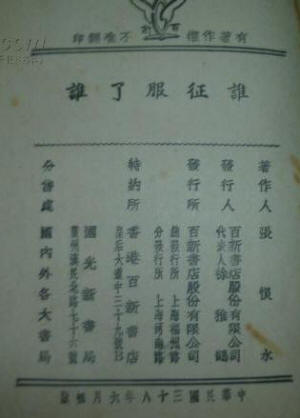 有著作權 不准翻印
誰征服了誰
著作人 張恨水
發行人 百新書店股份有限公司
代表人徐雅鶴
發行所 百新書店股份有限公司
總發行所 上海福州路
分發行所 上海河南路
特約所 香港百新書店
皇后大道中三十九號
國光新書局
廣州漢民北路七十六號
分售處 國內外各大書局
中華民國三十八年六月